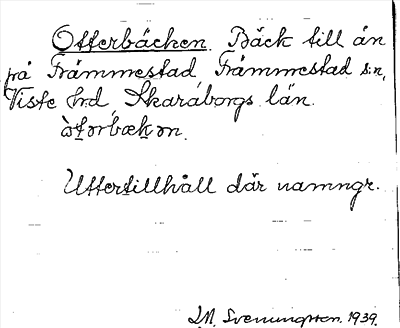 Otterbäcken. Bäck till ån
på Främmestad, Främmestad s:n,
Viste hd, Skaraborgs län.
òt̬ərbæk̬ən.
Uttertillhåll där namngr.
Sveningsson. 1939.